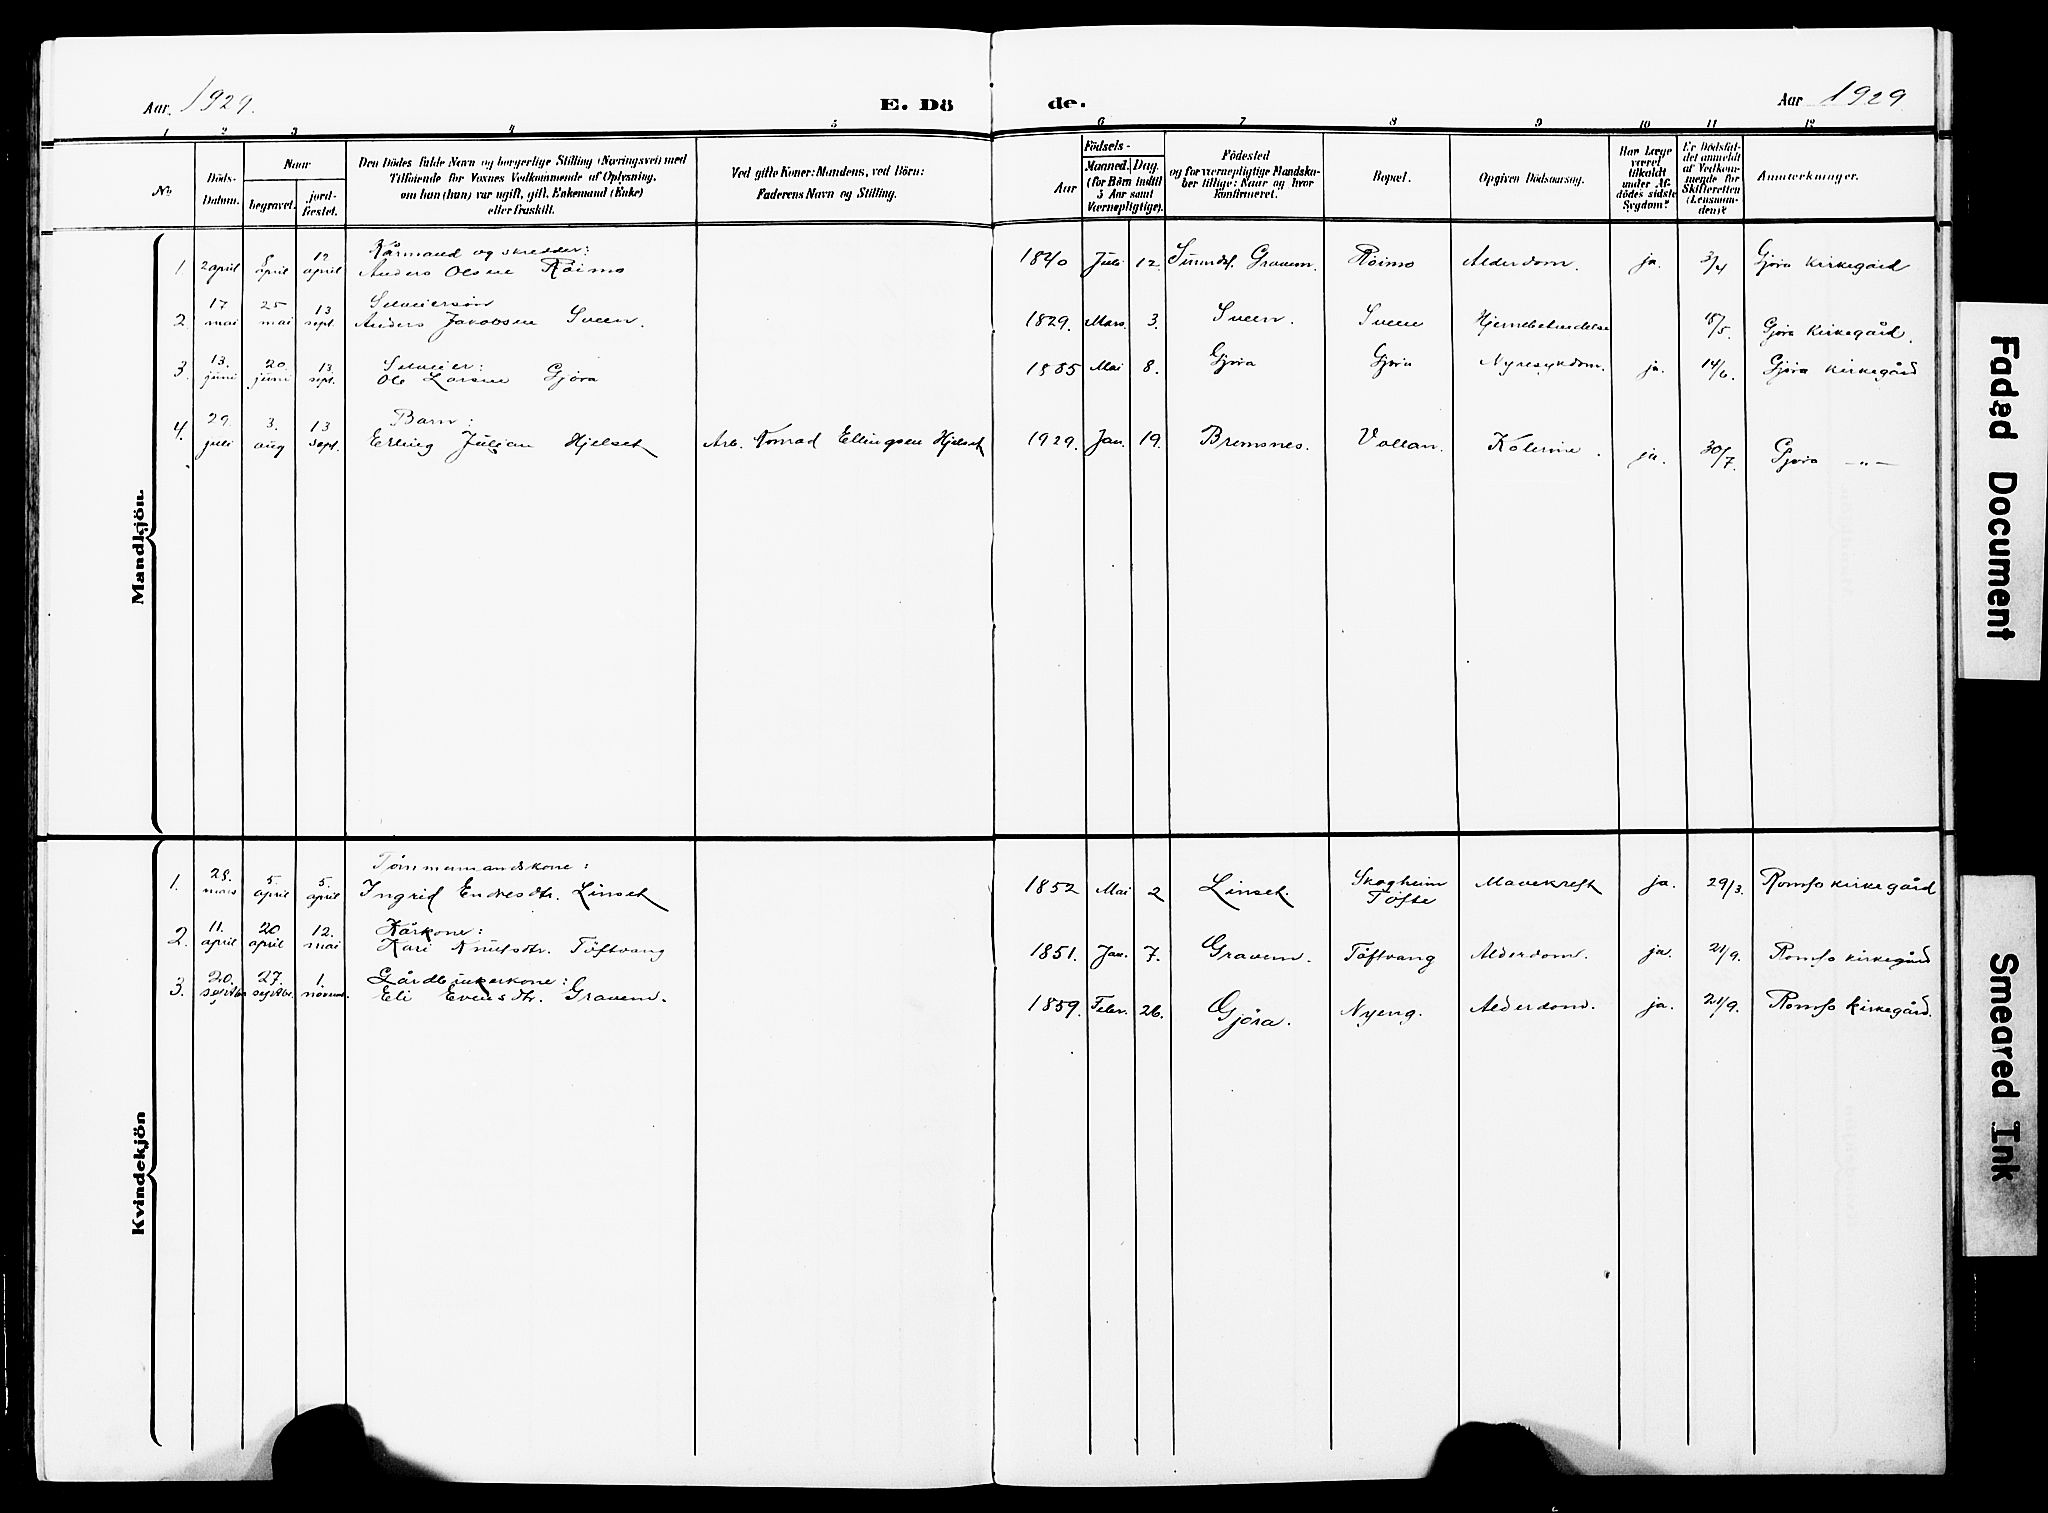 Aar. 1929. E. Dö de. Aar 1929
1 2 3 4 5 6 7 8 9 10 11 12
No
Döds-Datum.
Naar
begravet.
jord-fæstet.
Den Dödes fulde Navn og borgerlige Stilling (Næringsvei) med
Tilføiende for Voxnes Vedkommende af Oplysning,
om han (hun) var ugift, gift, Enkemand (Enke)
eller fraskilt.
Ved gifte Koner: Mandens, ved Börn:
Faderens Navn og Stilling.
Födsels-
Aar
Maaned. Dag.
(for Børn indtil
5 Aar samt
Værnepligtige).
Födested
og for værnepligtige Mandska-
ber tillige: Naar og hvor
konfirmeret.
Bopæl.
Opgiven Dödsaarsag.
Har Læge
været
tilkaldt
under Af-
dødes sidste
Sygdom?
Er Dødsfal-
det anmeldt
af Vedkom-
mende for
Skifteretten
(Lensman-
den)?
Anmærkninger.
Mandkjön.
Kårmand og skredder:
1 2 april 8 april 12 april Anders Olsen Röimo 1840 Juli 12. Sunndal. Gravem. Röimo Alderdom. ja. 3/4 Gjøra Kirkegård
Selveiersøn
2. 17 mai 25 mai 13 sept. Anders Jakobsen Sveen. 1829. Mars. 3. Sveen. Sveen 18/5. Gjøra Kirkegård.
Selveier:
3. 13. juni 20. juni 13. sept. Ole Larsen Gjöra 1885 Mai 8. Gjöra Gjöra Nyresykdom. ja. 14/6. Gjöra Kirkegård
Barn:
4. 29. juli 3. aug 13 sept. Erling Julian Hjelset Arb. Konrad Ellingsen Hjelset 1929. Jan. 19. Bremsnes. Vollan. Kolerine. ja. 30/7. Gjöra —„—
Kvindekjön
Tömmermandskone:
1. 28. mars 5. april 5. april Ingrid Endresdtr. Linset 1852 Mai 2 Linset. Skogheim Töfte Mavekreft ja. 29/3. Romfo kirkegård
Kårkone:
2. 11. april 20 april 12. mai Kari Knutsdtr. Töftvang 1851. Jan. 7. Gravem. Töftvang Alderdom. ja. 21/9. Romfo kirkegård
Gårdbrukerkone:
3. 20. septbr 27. septbr. 1. novemb. Eli Evensdtr. Gravem. 1859. Febr. 26. Gjöra. Nyeng. Alderdom. ja. 21/9. Romfo Kirkegård.
Faded Document
Smeared Ink